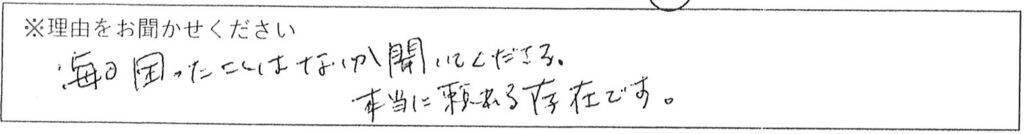 ※理由をお聞かせください
毎日困ったことはないか聞いてくださる。
本当に頼れる存在です。